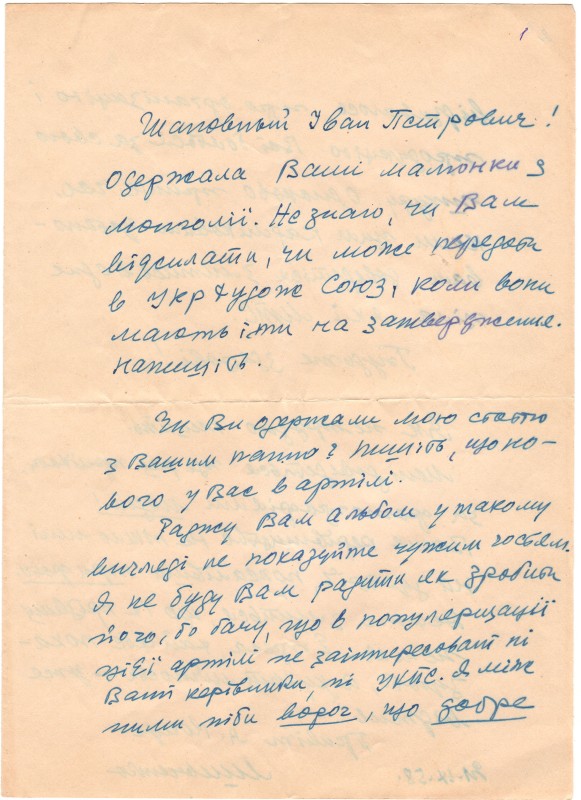 1
Шановный Іван Петрович!
Одержала Ваші малюнки з
монголії. Не знаю, чи Вам
відсилати, чи може передати
в Укр Худож Союз, коли вони
мають іти на затвердження.
Напишіть.
Чи Ви одержали мою статю
з Вашим панно? Пишіть, що но-
вого у Вас в артілі.
Раджу Вам альбом у такому
вигляді не показуйте чужим гостям.
Я не буду Вам радити як зробити
його, бо бачу, що в популяризації
цієї артілі не заінтересовані ні
Ваші керівники, ні УКПС. Я між
ними ніби ворог, що добре